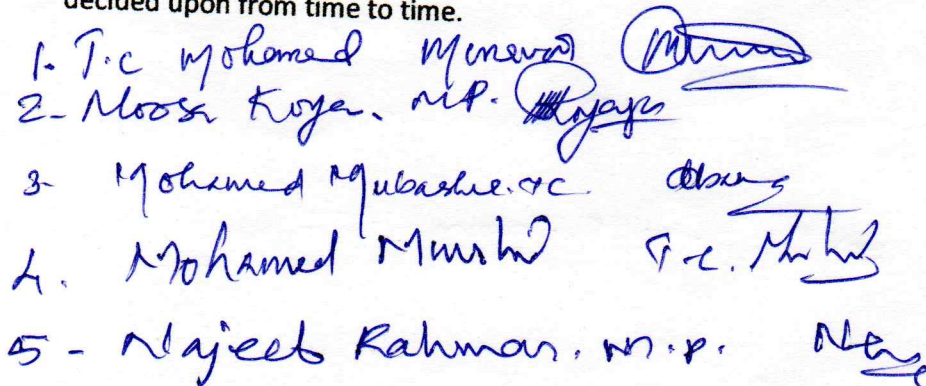 decided upon from time to time.
1. T.c Mohamed Munavar
2- Moosa Koya. M.P.
3- Mohamed Mubashir. T.C.
4. Mohamed Murshid T.C.
5- Najeeb Rahman. M.P.